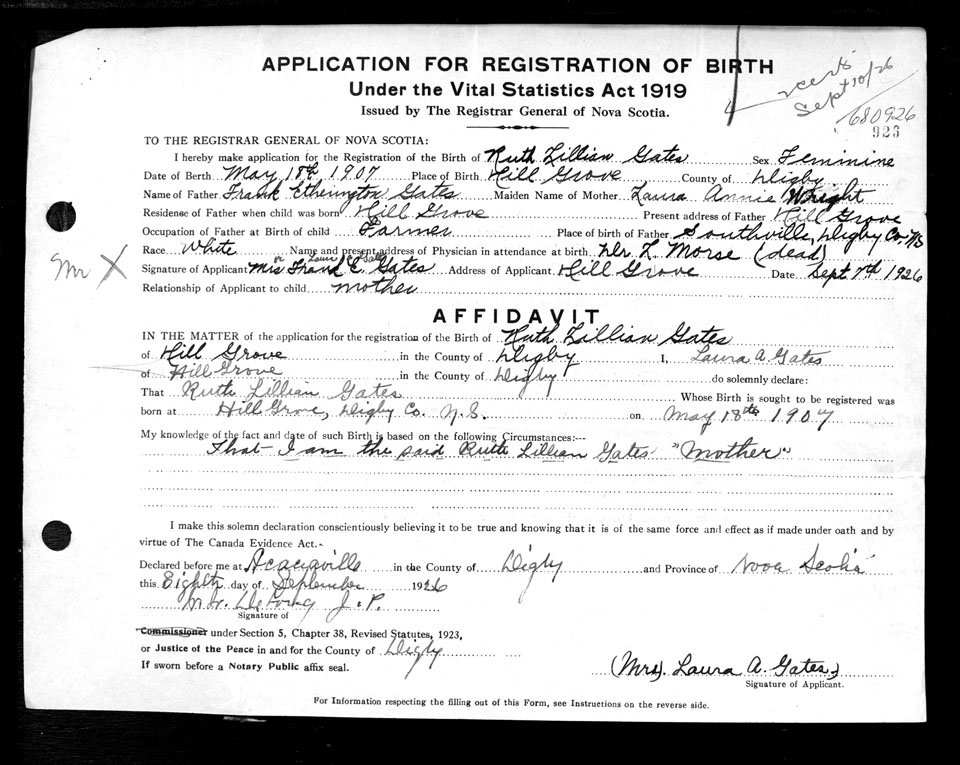 APPLICATION FOR REGISTRATION OF BIRTH
Under the Vital Statistics Act 1919
Issued by The Registrar General of Nova Scotia.
Sept 10/26
680926
923
TO THE REGISTRAR GENERAL OF NOVA SCOTIA:
I hereby make application for the Registration of the Birth of Ruth Lillian Gates Sex Feminine
Date of Berth May 18th 1907 Place of Birth Hill Grove County of Digby
Name of Father Frank Etherington Gates Maiden Name of Mother Laura Annie Wright
Residense of Father when child was born Hill Grove Present address of Father Hill Grove
Occupation of Father at Birth of child Farmer Place of birth of Father Southville, Digby Co. NS
Race White Name and present address of Physician in attendance at birth Dr L. Morse (dead)
Mr X
or Laura Gates
Signature of Applicant Mrs Frank E. Gates Address of Applicant Hill Grove Date Sept 7th 1926
Relationship of Applicant to child mother
AFFIDAVIT
IN THE MATTER of the application for the registration of the Birth of Ruth Lillian Gates
of Hill Grove in the County of Digby I, Laura A. Gates
of Hill Grove in the County of Digby do solemnly declare:
That Ruth Lillian Gates Whose Birth is sought to be registered was
born at Hill Grove, Digby Co. N.S. on May 18th 1907
My knowledge of the fact and date of such Birth is based on the following Circumstances:—
That I am the said Ruth Lillian Gates "Mother"
I make this solemn declaration conscientiously believing it to be true and knowing that it is of the same force and effect as if made under oath and by
virtue of The Canada Evidence Act.
Declared before me at Acaciaville in the County of Digby and Province of Nova Scotia
this Eighth day of September 1926
J. P.
Signature of
Commissioner under Section 5, Chapter 38, Revised Statutes, 1923,
or Justice of the Peace in and for the County of Digby
If sworn before a Notary Public affix seal.
(Mrs). Laura A. Gates.
Signature of Applicant.
For Information respecting the filling out of this Form, see Instructions on the reverse side.